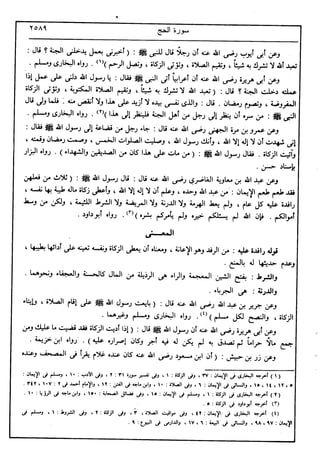 سورة الحج ٢٥٨٩
وعن أبي أيوب رضى الله عنه أن رجلاً قال للنبي ﷺ : ( أخبرني بعمل يدخلني الجنة ؟ قال :
تعبد الله لا تشرك به شيئاً ، وتقيم الصلاة ، وتؤتي الزكاة ، وتصل الرحم )(١) . رواه البخارى ومسلم .
وعن أبي هريرة رضى الله عنه أن أعرابياً أتى النبي ﷺ فقال : يا رسول الله دلنى على عمل إذا
عملته دخلت الجنة ؟ قال : ( تعبد الله لا تشرك به شيئاً ، وتقيم الصلاة المكتوبة ، وتؤتى الزكاة
المفروضة ، وتصوم رمضان . قال : والذى نفسى بيده لا أزيد على هذا ولا أنقص منه . فلما ولى قال
النبي ﷺ : من سره أن ينظر إلى رجل من أهل الجنة فلينظر إلى هذا )(٢) . رواه البخارى ومسلم .
وعن عمرو بن مرة الجهني رضى الله عنه قال : جاء رجل من قضاعة إلى رسول الله ﷺ فقال :
إنى شهدت أن لا إله إلا الله ، وأنك رسول الله ، وصليت الصلوات الخمس ، وصمت رمضان وقمته ،
وآتيت الزكاة . فقال رسول الله ﷺ : ( من مات على هذا كان من الصديقين والشهداء ) . رواه البزار
بإسناد حسن .
وعن عبد الله بن معاوية الغاضرى رضى الله عنه قال : قال رسول الله ﷺ : ( ثلاث من فعلهن
فقد طعم طعم الإيمان : من عبد الله وحده ، وعلم أن لا إله إلا الله ، وأعطى زكاة ماله طيبة بها نفسه ،
رافدة عليه كل عام ، ولم يعط الهرمة ولا الدرنة ولا المريضة ولا الشرط اللئيمة ، ولكن من وسط
أموالكم . فإن الله لم يسئلكم خيره ولم يأمركم بشره )(٣) . رواه أبو داود .
المعـــنى
قوله رافدة عليه : من الرفد وهو الإعانة ، ومعناه أن يعطى الزكاة ونفسه تعينه على أدائها بطيبها ،
وعدم حديثها له بالمنع .
والشرط : بفتح الشين المعجمة والراء هى الرذيلة من المال كالمسنة والعجفاء ونحوهما .
والدرنة : هى الجرباء .
وعن جرير بن عبد الله رضى الله عنه قال : ( بايعت رسول الله ﷺ على إقام الصلاة ، وإيتاء
الزكاة ، والنصح لكل مسلم )(٤) . رواه البخارى ومسلم وغيرهما .
وعن أبي هريرة رضى الله عنه أن رسول الله ﷺ قال : ( إذا أديت الزكاة فقد قضيت ما عليك ومن
جمع مالاً حراماً ثم تصدق به لم يكن له فيه أجر وكان إصراره عليه ) . رواه ابن خزيمة .
وعن زر بن حبيش : ( أن ابن مسعود رضى الله عنه كان عنده غلام يقرأ فى المصحف وعنده
(١) أخرجه البخارى فى الإيمان : ٣٧ ، وفى الزكاة : ١ ، وفى تفسير سورة ٣١ : ٢ ، وفى الأدب : ١٠ ، ومسلم فى الإيمان :
(٢) أخرجه البخارى فى الزكاة : ١ ، ومسلم فى الإيمان : ١٥
(٣) أخرجه أبو داود فى الزكاة : ٥ .